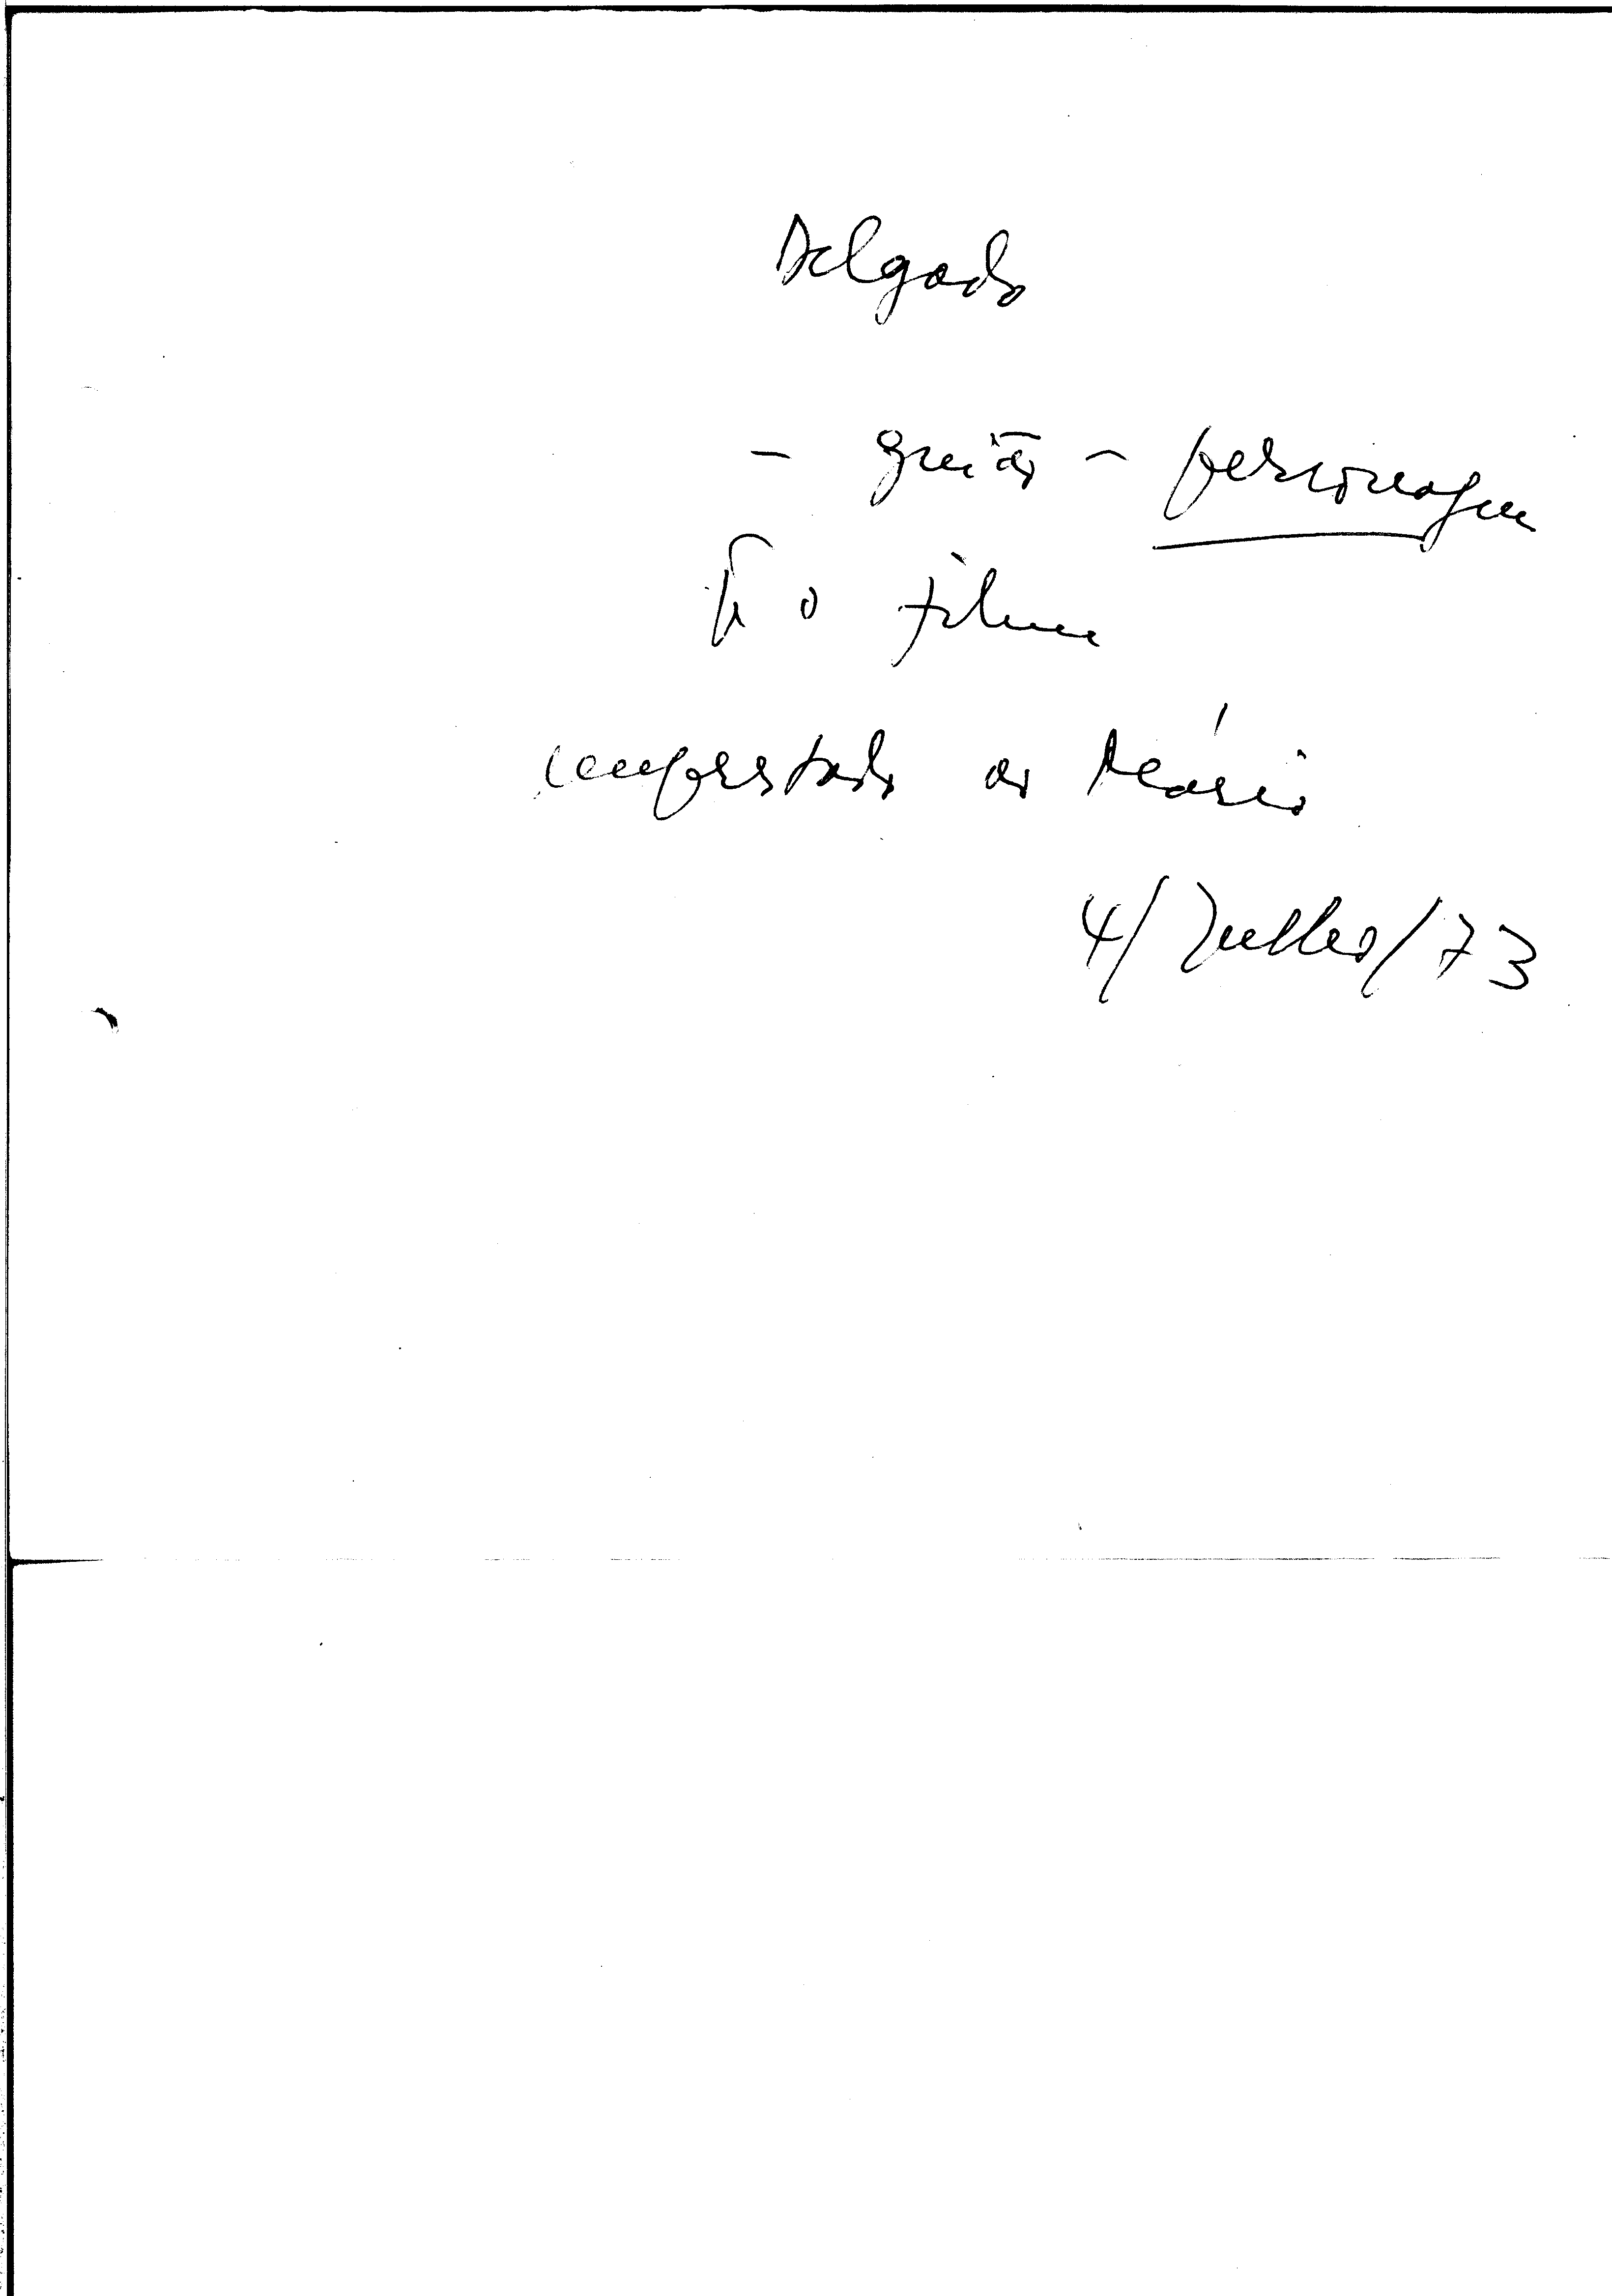 Delgado
- guião - personagem
p/ o filme
emprestado ao Mário
4/Julho/73